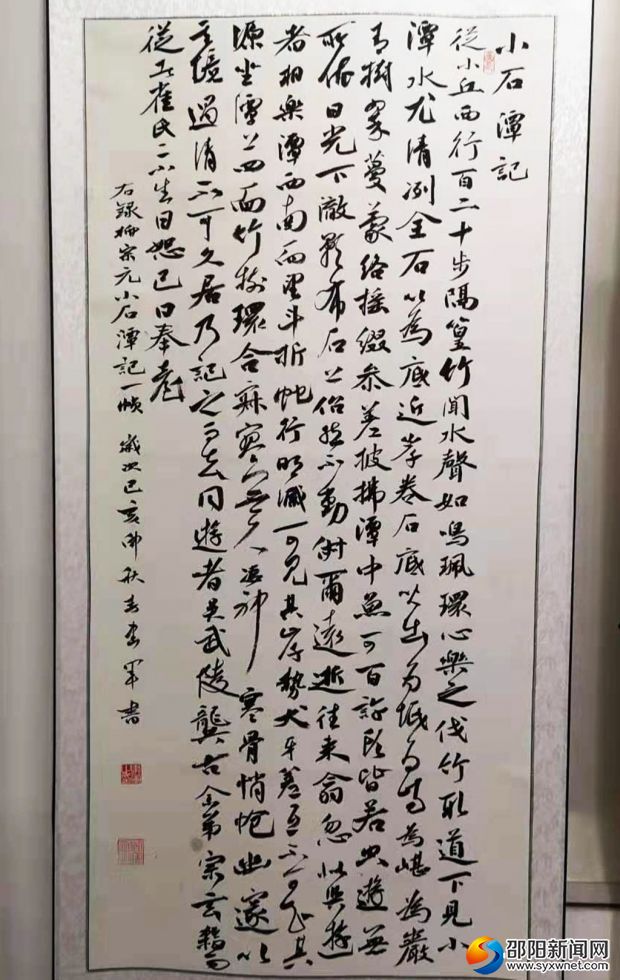 小石潭記
從小丘西行百二十步隔篁竹聞水聲如鳴珮環心樂之伐竹取道下見小
潭水尤清冽全石以為底近岸卷石底以出為坻為嶼為嵁為巖
青樹翠蔓蒙絡摇缀参差披拂潭中魚可百許頭皆若空遊無
所依日光下澈影布石上佁然不動俶爾遠逝往来翕忽似與遊
者相樂潭西南而望斗折蛇行明滅可見其岸勢犬牙差互不可知其
源坐潭上四面竹樹環合寂寥無人凄神寒骨悄愴幽邃以
其境過清不可久居乃記之而去同遊者吳武陵龔古余弟宗玄隸而
從者崔氏二小生曰恕己曰奉壹
右錄柳宗元小石潭記一幀 歲次己亥仲秋 軍書
邵阳新闻网
www.syxwnet.com